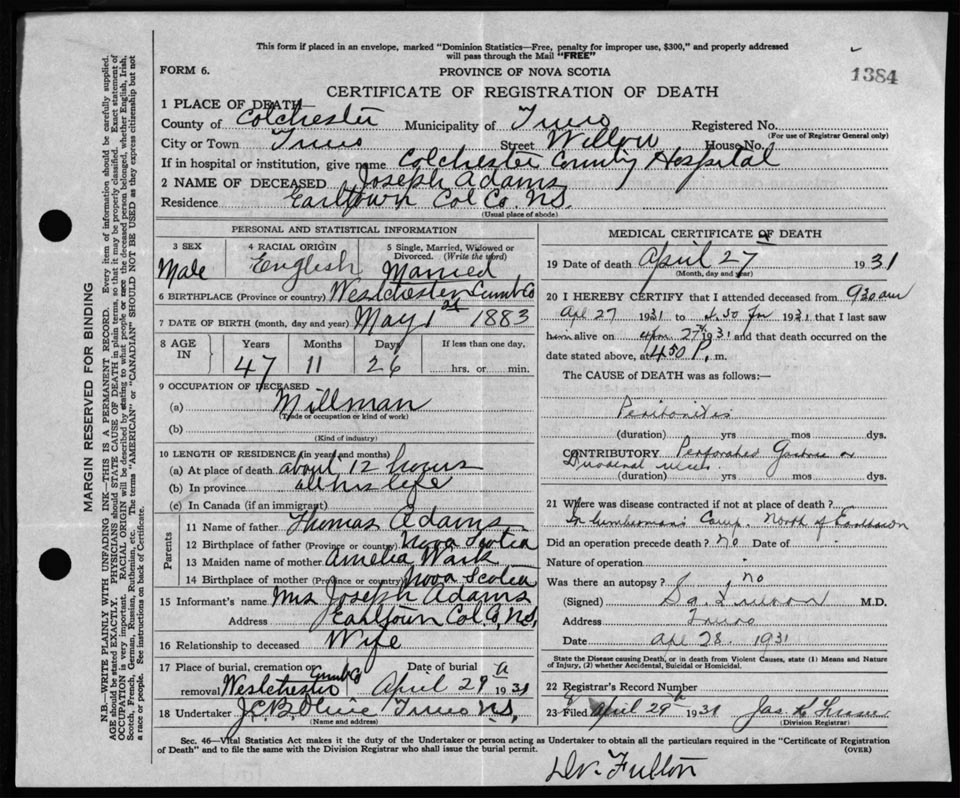 This form if placed in an envelope, marked "Dominion Statistics—Free, penalty for improper use, $300," and properly addressed
will pass through the Mail "FREE"
FORM 6.
PROVINCE OF NOVA SCOTIA
1384
CERTIFICATE OF REGISTRATION OF DEATH
1 PLACE OF DEATH—
County of Colchester Municipality of Truro Registered No.
(For use of Registrar General only)
City or Town Truro Street Willow House No.
If in hospital or institution, give name Colchester County Hospital
2 NAME OF DECEASED Joseph Adams
Residence Earltown Col Co. N.S.
(Usual place of abode)
PERSONAL AND STATISTICAL INFORMATION
3 SEX 4 RACIAL ORIGIN 5 Single, Married, Widowed or Divorced. (Write the word)
Male English Married
6 BIRTHPLACE (Province or country) Westchester Cumb Co
7 DATE OF BIRTH (month, day and year) May 1st 1883
8 AGE IN Years Months Days If less than one day.
47 11 26 hrs. or min.
9 OCCUPATION OF DECEASED
(a) Millman
(Trade or occupation or kind of work)
(b)
(Kind of industry)
10 LENGTH OF RESIDENCE (in years and months)
(a) At place of death about 12 hours
(b) In province all his life
(c) In Canada (if an immigrant)
Parents
11 Name of father Thomas Adams
12 Birthplace of father (Province or country) Nova Scotia
13 Maiden name of mother Amelia
14 Birthplace of mother (Province or country) Nova Scotia
15 Informant's name Mrs Joseph Adams
Address Earltown Col Co, N.S.
16 Relationship to deceased Wife
17 Place of burial, cremation or removal Westchester Cumb Co Date of burial April 29th 1931
18 Undertaker J.C.B. Olive Truro N.S.
(Name and address)
MEDICAL CERTIFICATE OF DEATH
19 Date of death April 27th 1931
(Month, day and year)
20 I HEREBY CERTIFY that I attended deceased from 9 30 am
Apl 27 1931 to 4.50 Pm 1931 that I last saw
him alive on 27th 1931 and that death occurred on the
date stated above, at 450 P. m.
The CAUSE of DEATH was as follows:—
Peritonitis
(duration) yrs mos dys.
CONTRIBUTORY Perforated Gastric or
Duodenal ulcer
(duration) yrs mos dys.
21 Where was disease contracted if not at place of death?
In Lumberman's Camp. North of Earltown
Did an operation precede death? no Date of
Nature of operation
Was there an autopsy? no
(Signed) M.D.
Address Truro
Date Apl 28. 1931
State the Disease causing Death, or in death from Violent Causes, state (1) Means and Nature
of Injury, (2) whether Accidental, Suicidal or Homicidal.
22 Registrar's Record Number
23 Filed April 29th 1931 Jas.
(Division Registrar)
Sec. 46—Vital Statistics Act makes it the duty of the Undertaker or person acting as Undertaker to obtain all the particulars required in the "Certificate of Registration
of Death" and to file the same with the Division Registrar who shall issue the burial permit. (OVER)
Dr. Fulton
MARGIN RESERVED FOR BINDING
N.B.—WRITE PLAINLY WITH UNFADING INK—THIS IS A PERMANENT RECORD. Every item of information should be carefully supplied.
AGE should be stated EXACTLY. PHYSICIANS should STATE CAUSE OF DEATH in plain terms, so that it may be properly classified. Exact statement of
OCCUPATION very important. RACIAL ORIGIN will be described by stating to what people or race the deceased person belonged, whether English, Irish,
Scotch, French, German, Russian, Ruthenian, etc. The terms "AMERICAN" or "CANADIAN" SHOULD NOT BE USED as they express citizenship but not
a race or people. See instructions on back of Certificate.